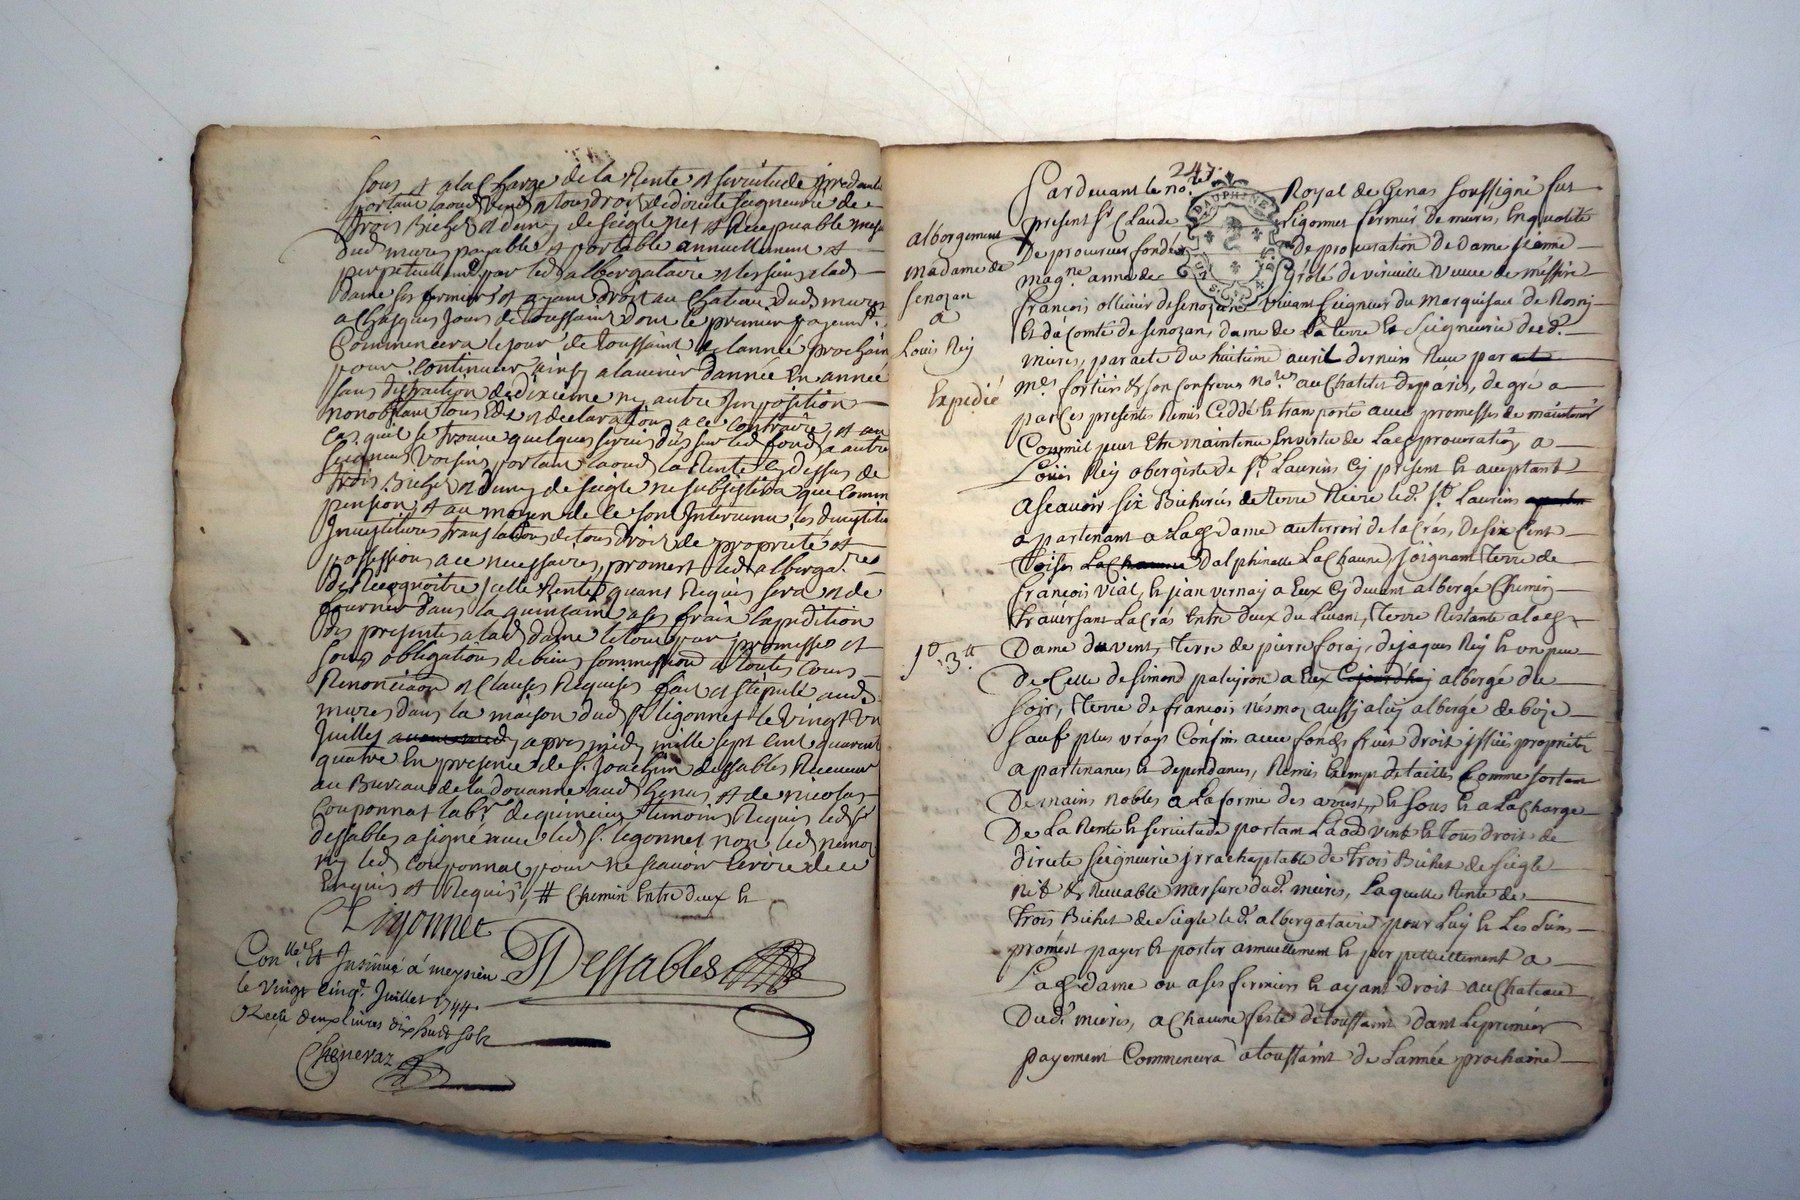 sous et a la Charge de la Rente et servitude
portant laoud vend et tous droit de directe seigneurie de
trois Bichet et demy de seigle net et Recepuable mesure
dud mures payable et portable annuellement et
perpetuellemt par led albergataire et les siens a lad
dame ses fermiers et ayant droit au Chateau dud mures
a Chasques Jours de toussaint dont le premier payemt
Commencera le jour de toussaint de lannée prochain
pour continuer ainsy a lavenir dannée En année
sans distraction de dixieme ny autre Imposition
nonobstant tous Edit et declarations a ce contraire, et au
cas quil se trouve quelques servis dus sur led fond a autre
seigneur Voisins portant laoud la Rente Cy dessus de
trois Bichet et demy de seigle ne subsistera que Comme
pension, et au moyen de ce sont Intervenu les
Investitures translations de tous droit de propriete et
possession a ce necessaires, promest led alberga.re
de Recognoitre Icelle Rente quant Requis sera et de
fournir dans la quinsaine a ses frais Expedition
des presentes a lad dame le tout par promesses et
sous obligations de biens sommission a toutes Cours
Renonciaon et Clauses Requises fait et stipulé aud
mures dans la maison dud Sr ligonnet le vingt un
Juillet apres midy mille sept cent quarent
quatre En presence de Sr Joachim dessables Receveur
au Bureau de la douanne aud Genas et de nicolas
Couponnat labr de quimieu temoins Requis led Sr
dessables a signé avec led Sr ligonnet non led nemoz
ny led Couponnat pour ne scavoir Ecrire de ce
Enquis et Requis, # Chemin Entre deux Et
Ligonnet
Dessables
Conlle Et Insinué á meysieu
le vingt cinq Juillet 1744
Receu deux livres dix huit sols
Chenevaz
247.
Pardevant le no.re Royal de Genas soussigné fut
DAUPHINE
present Sr Claude Ligonnet fermier de mures, En qualité
De procureur fondé de procuration de dame jeanne
mag.ne anne de Grolé de virieville veuve de messire
françois ollivier de senozan vivant seigneur du Marquisau de Rosny
Et du Comté de senozan, dame de La terre Et seigneurie dud.
mures, par acte du huitieme avril dernier Receu par
Mes fortier & son Confrere no.res au Chatelet de paris, de gré a
par Ces presentes Remis Ceddé Et transporté avec promesses de maintenir
Comme il peut Etre maintenu En vertu de Lad procuration a
Loüis Rey obergiste de St Laurins Cy present Et aceptant
a scavoir six Bicherées de terre Riere led. St Laurins
apartenant a Lad dame au terroir de la Cras, de six Cent
Toises dalphinalle La Chacune, joignant terre de
françois vial, Et jean vernay a Eux Cy devant albergé Chemin
traversant La Cras Entre deux du Levant, terre Restante a lad
Dame du vent, terre de pierre foraj, de jaques Rey Et un peu
de Celle de simond paleyron a Eux albergé du
soir, terre de françois nésmoz aussy a luy albergé de bize
sauf plus vrays Confins avec fonds fruits droit issües proprieté
apartenances Et dependances, Remis Exempt de tailles Comme sortant
De mains nobles a La forme des arrest, Et sous Et a La Charge
De La Rente Et servitude portant Laod vent Et tous droit de
dirette seigneurie jrrachaptable de trois Bichet de seigle
net & Recevable mersure dud. meures, Laquelle Rente de
trois Bichet de seigle led. albergataire pour Luy Et Les siens
promest payer Et porter annuellement Et perpetuellement a
Lad dame ou a ses fermiers Et ayant droit au Chateau
Dud. mures, a Chacune feste de toussaint dont Le premier
payement Commencera a toussaint de Lannée prochaine
albergement
Madame de
senozan
a
Louis Rey
Expedié